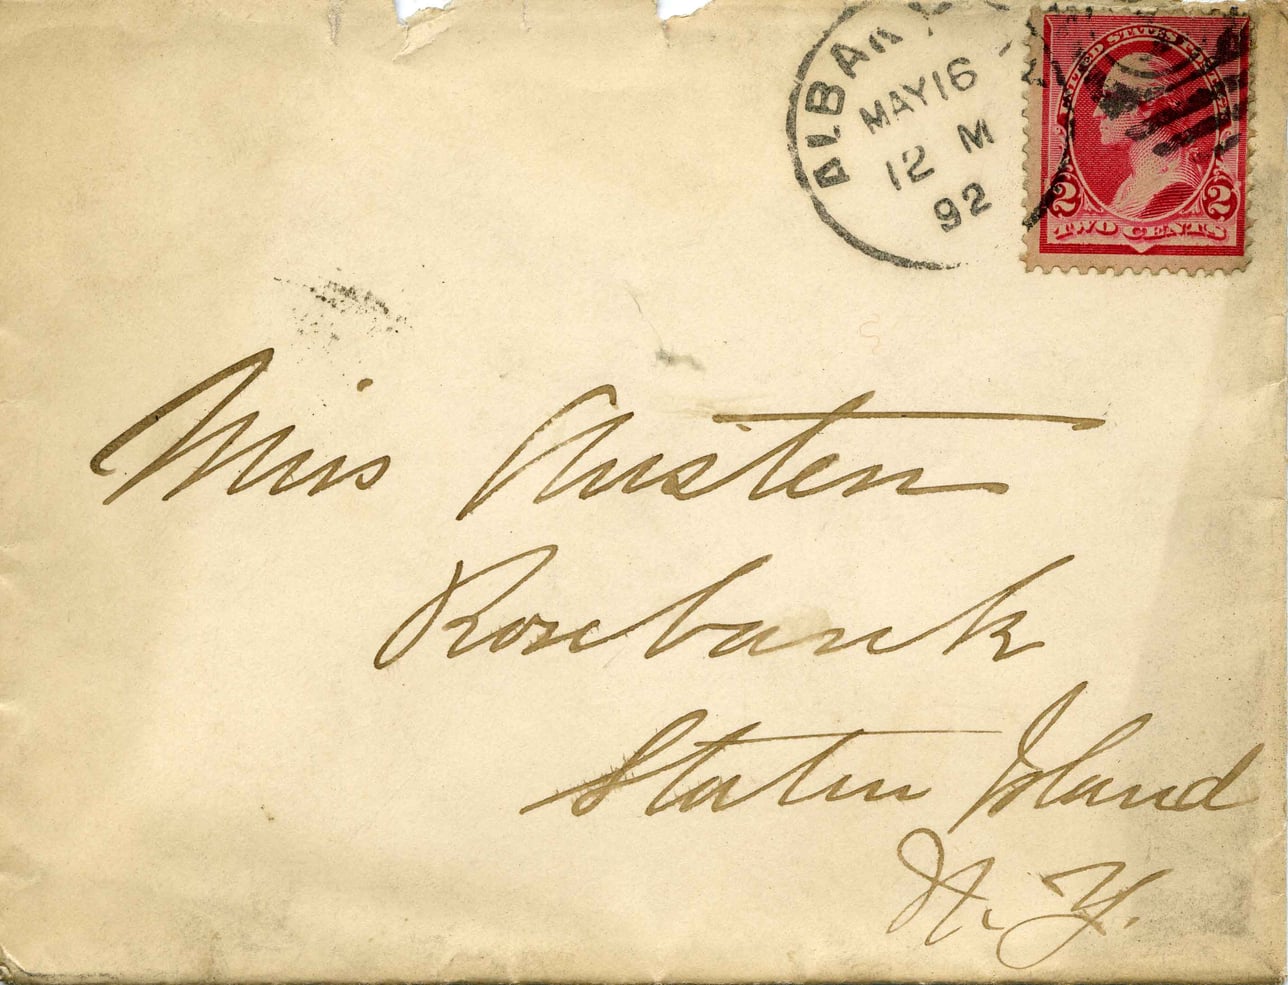 ALBANY
MAY 16
12 M
92
UNITED STATES POSTAGE
2 2
TWO CENTS
Miss Austen
Rosebank
Staten Island
N. Y.